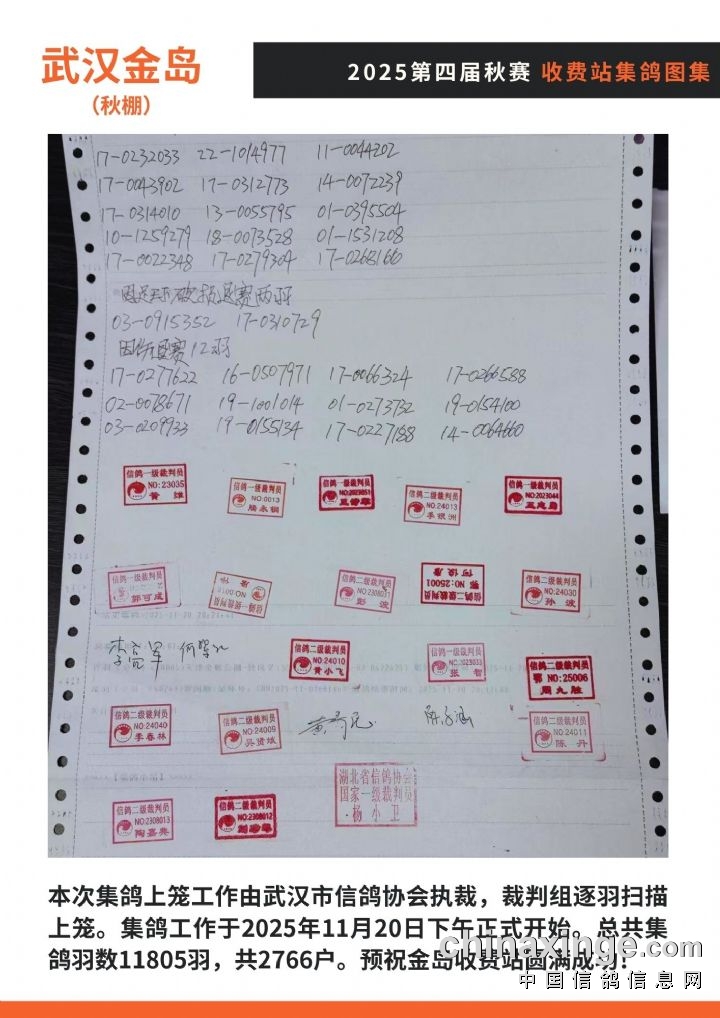 武汉金岛
（秋棚）
2025第四届秋赛 收费站集鸽图集
17-0232033 22-1014977 11-0044202
17-0043902 17-0312773 14-0072239
17-0314010 13-0055795 01-0395504
10-1259279 18-0073528 01-1531208
17-0022348 17-0279304 17-0268166
因足环破损退赛两羽
03-0915352 17-0310729
因伤退赛12羽
17-0277622 16-0507971 17-0066324 17-0266588
02-0078671 19-1001014 01-0273732 19-0154100
03-0209933 19-0155134 17-0227188 14-0064660
信鸽一级裁判员
NO:23035
黄 雄
信鸽一级裁判员
NO:0013
信鸽一级裁判员
NO:2023051
信鸽二级裁判员
NO:24013
李银洲
信鸽二级裁判员
NO:2023044
王志勇
信鸽一级裁判员
郭可成
信鸽一级裁判员
信鸽二级裁判员
NO:2308031
彭 波
信鸽二级裁判员
鄂 NO:25001
信鸽二级裁判员
NO:24030
孙 波
信鸽二级裁判员
NO:24010
黄小飞
信鸽二级裁判员
NO:2023033
张 智
信鸽二级裁判员
鄂 NO:25006
周九胜
信鸽二级裁判员
NO:24040
李春林
信鸽二级裁判员
NO:24009
吴贤斌
信鸽二级裁判员
NO:24011
陈 丹
信鸽二级裁判员
NO:2308013
陶嘉典
信鸽二级裁判员
NO:2308012
湖北省信鸽协会
国家一级裁判员
·杨小卫
本次集鸽上笼工作由武汉市信鸽协会执裁，裁判组逐羽扫描
上笼。集鸽工作于2025年11月20日下午正式开始。总共集
鸽羽数11805羽，共2766户。预祝金岛收费站圆满成功！
chinaxinge.com
中国信鸽信息网